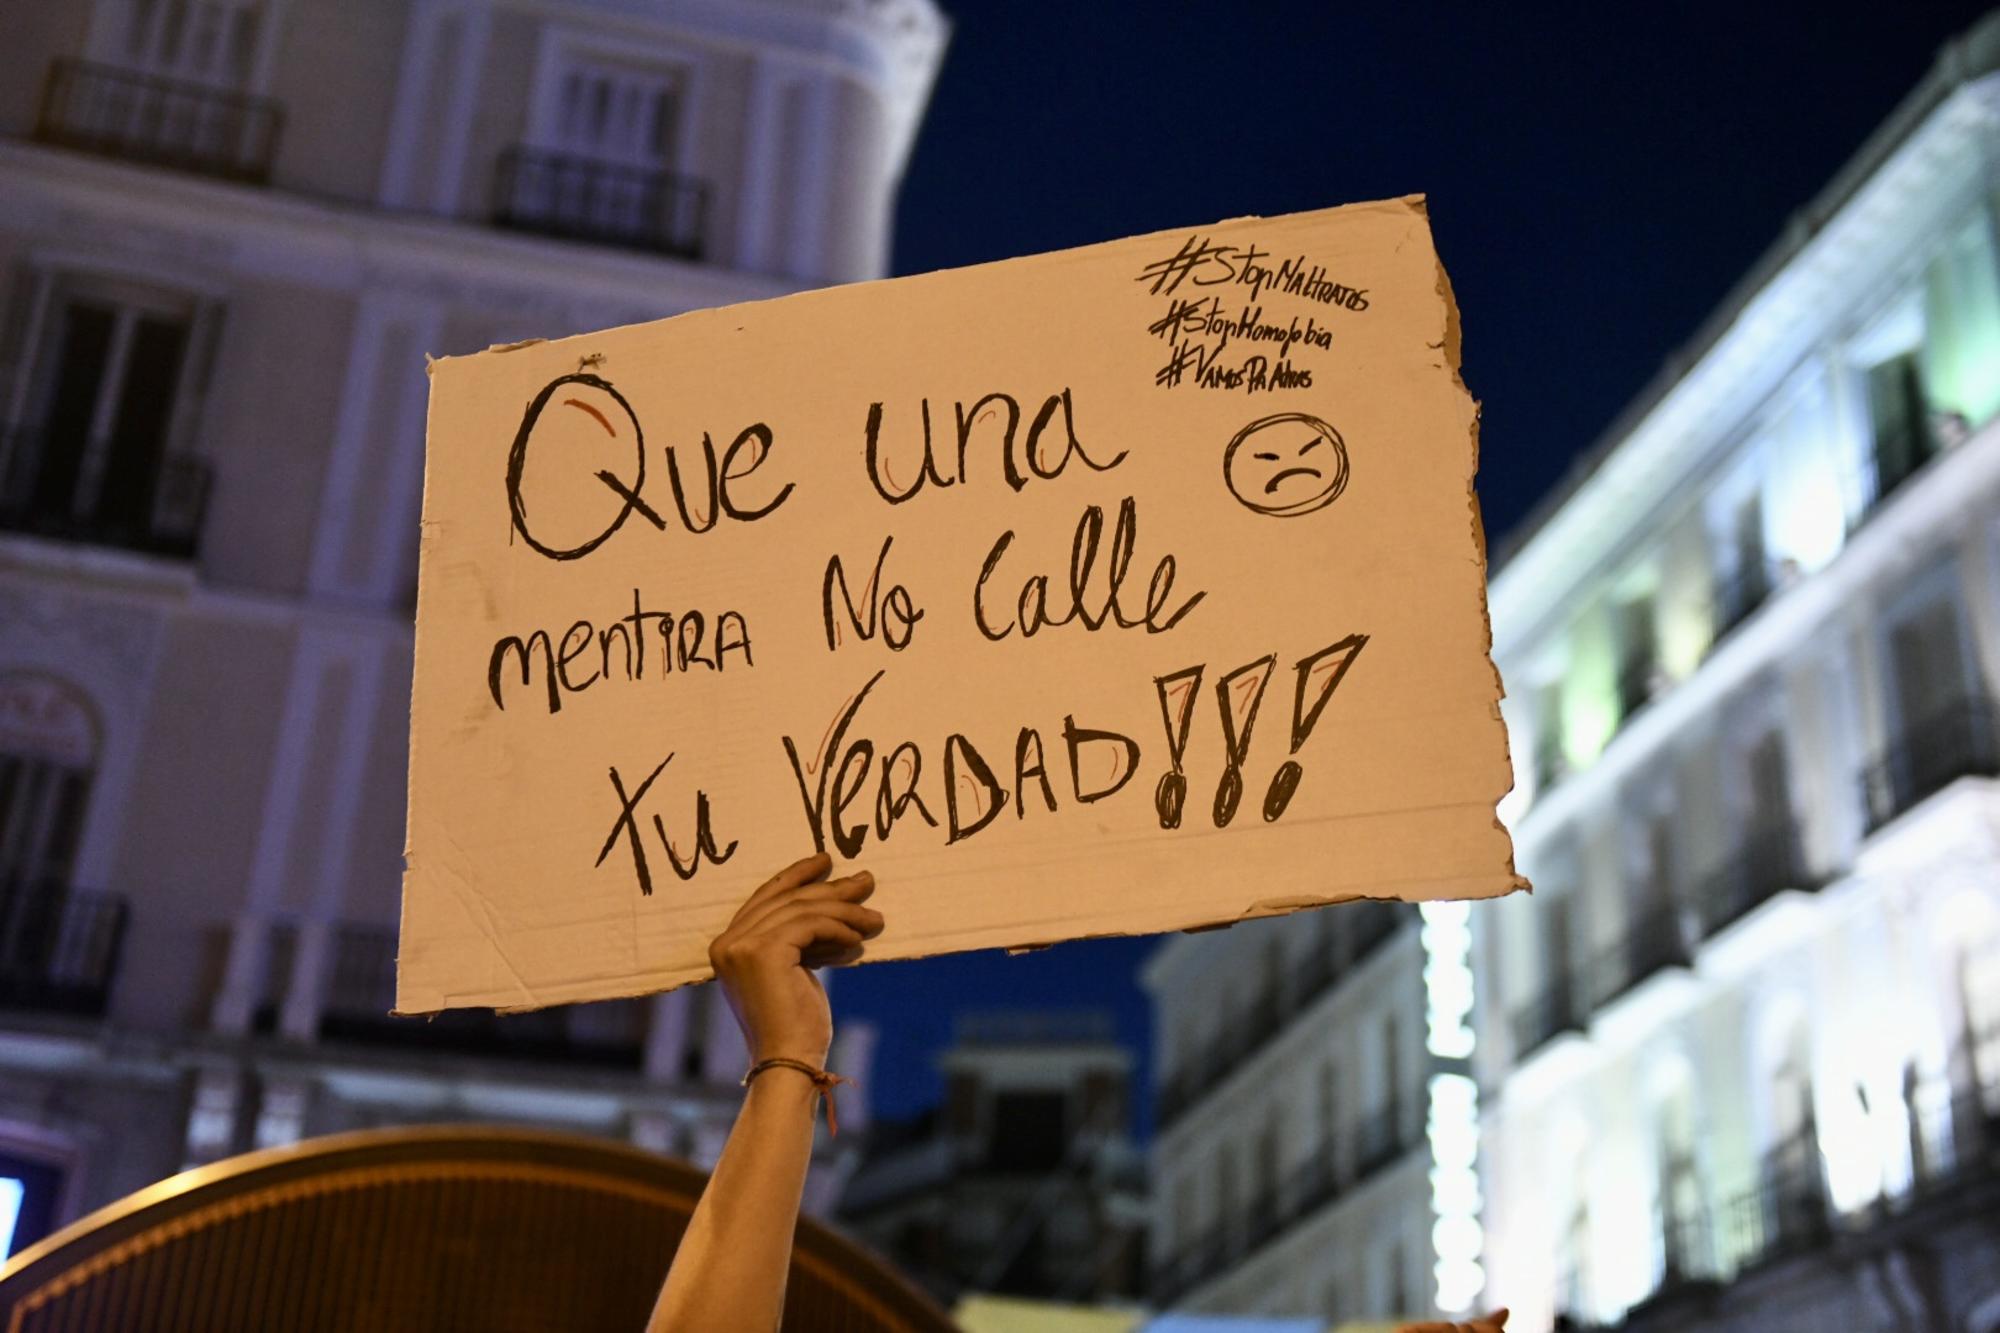 #StopMaltratos
#StopHomofobia
#VamosPaAtras
Que una
mentira No Calle
tu VerDAD!!!